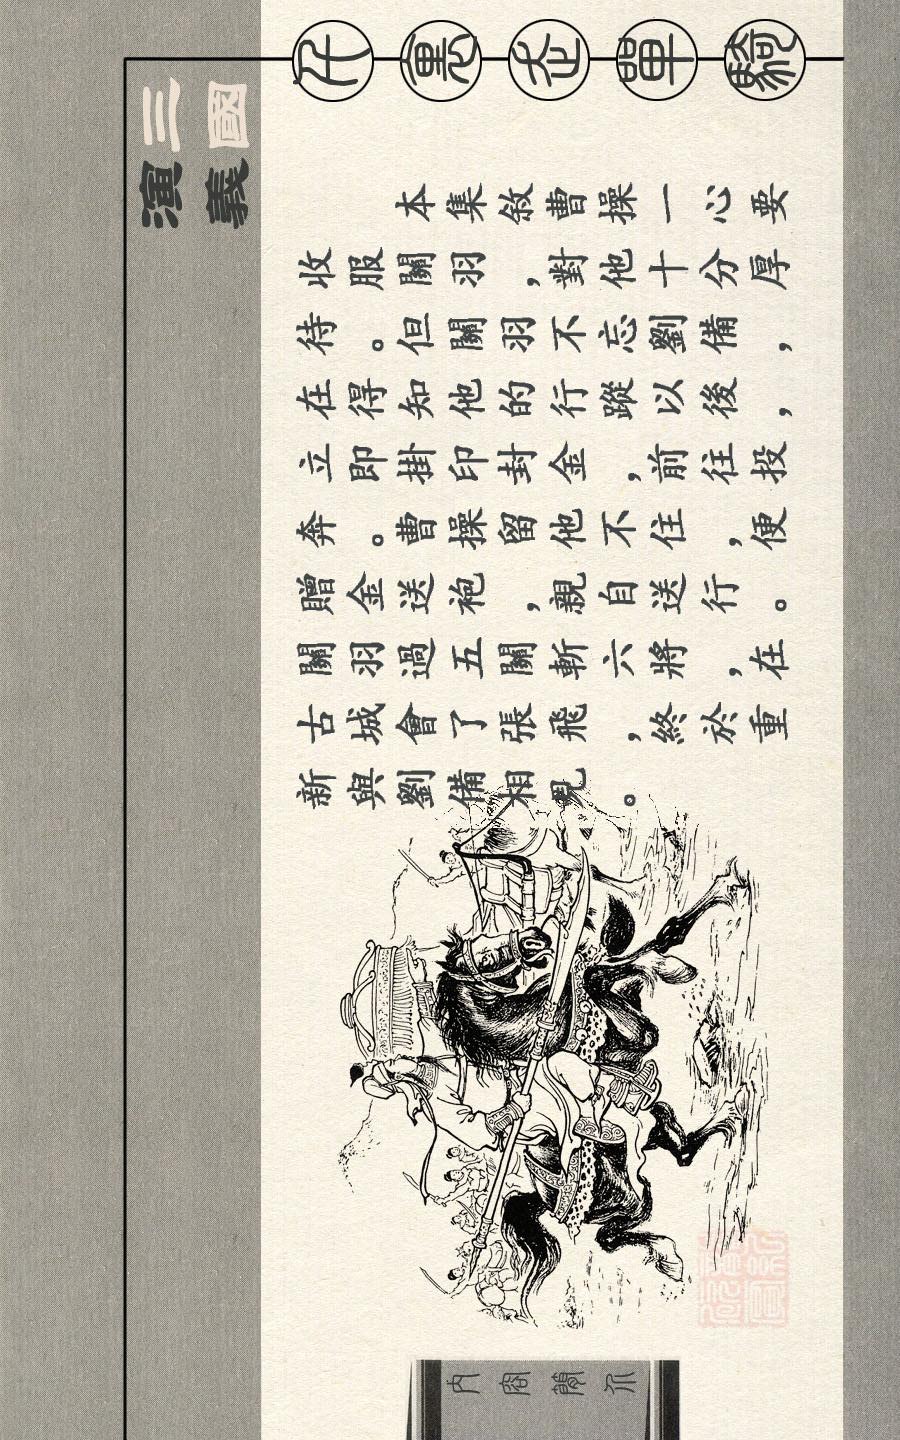 千裏走單騎
三國
演義
本集敘曹操一心要
收服關羽,對他十分厚
待。但關羽不忘劉備,
在得知他的行蹤以後,
立即掛印封金,前往投
奔。曹操留他不住,便
贈金送袍,親自送行。
關羽過五關斬六將,在
古城會了張飛,終於重
新與劉備相見。
內容簡介